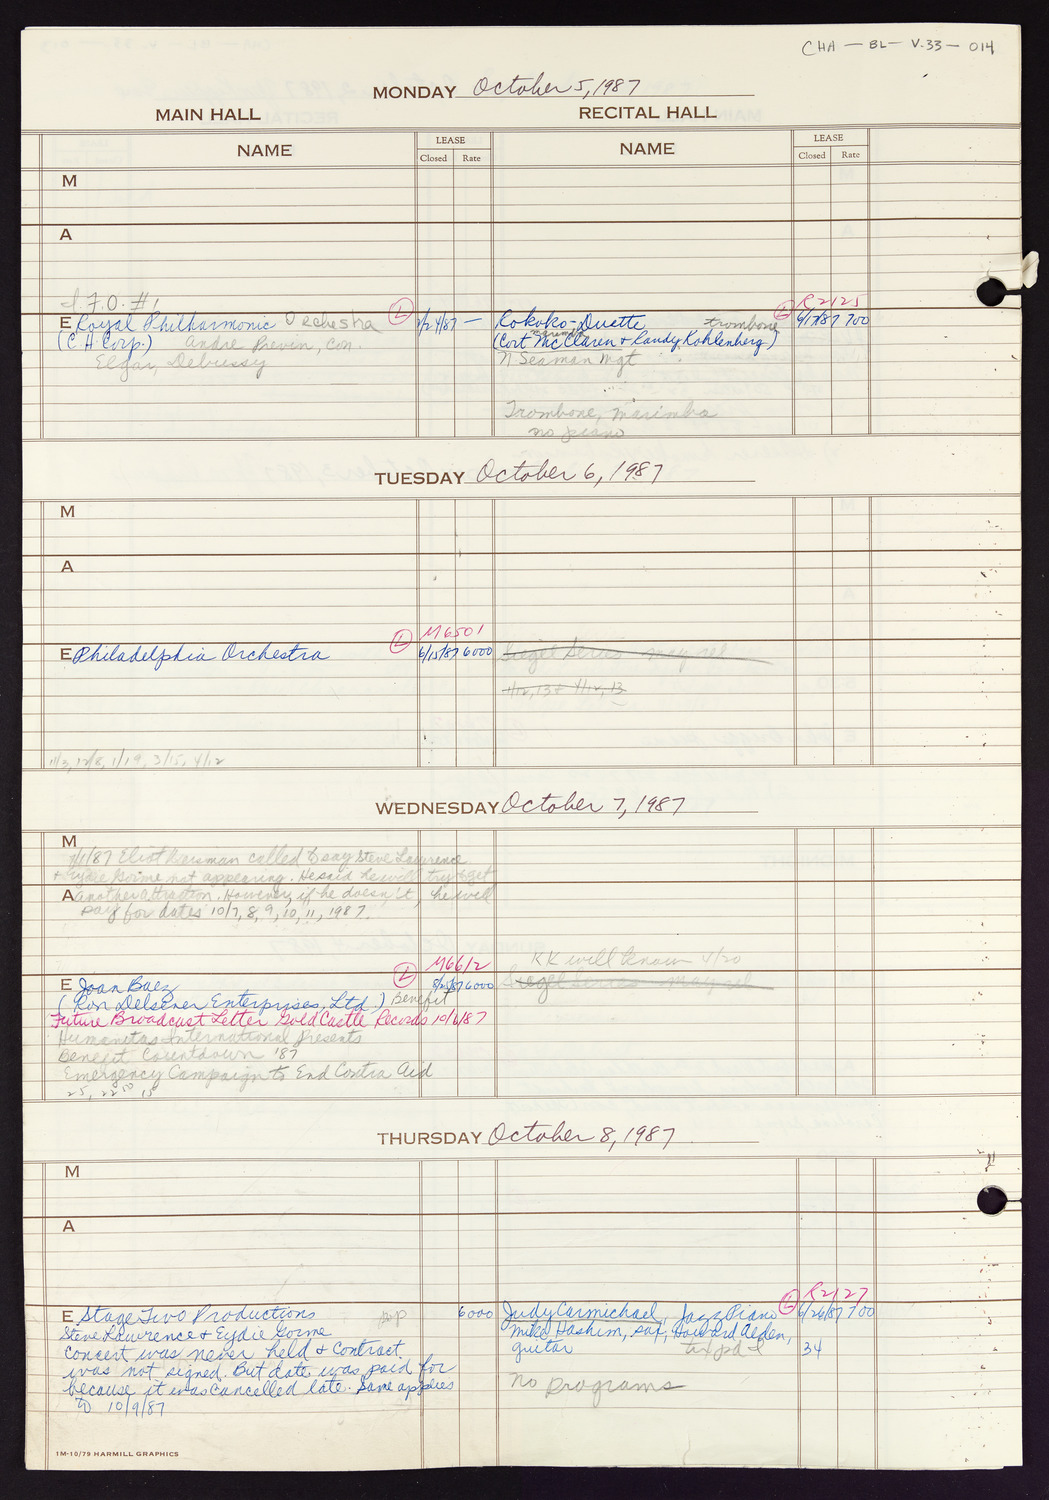 CHA — BL — V.33 — 014
MONDAY October 5, 1987
MAIN HALL RECITAL HALL
NAME LEASE Closed Rate NAME LEASE Closed Rate
M
A
I.F.O. #1
R2125
E Royal Philharmonic Orchestra L 2/24/87 — Rokoko-Duette trombone L 6/17/87 700
(C.H. Corp.) Andre Previn, con. (Cort McClaren + Randy Kohlenberg) marimba
Elgar, Debussy N Seaman Mgt
Trombone, marimba
no piano
TUESDAY October 6, 1987
M
A
L M6501
E Philadelphia Orchestra 6/15/87 6000 Siegel Series may rel
1/12, 13 + 4/12, 13
11/3, 12/8, 1/19, 3/15, 4/12
WEDNESDAY October 7, 1987
M
7/1/87 Eliot Weisman called to say Steve Lawrence
+ Eydie Gorme not appearing. He said he will try to get
A another attraction. However, if he doesn't, he will
pay for dates 10/7, 8, 9, 10, 11, 1987.
KK will know 4/20
L M6612
E Joan Baez 8/25/87 6000 Siegel Series may rel
(Ron Delsener Enterprises, Ltd.) Benefit
Future Broadcast Letter Gold Castle Records 10/6/87
Humanitas International Presents
Benefit Countdown '87
Emergency Campaign to End Contra Aid
25, 22.50 15
THURSDAY October 8, 1987
M
A
R2127
E Stage Two Productions pop 6000 Judy Carmichael, Jazz Piano L 6/26/87 700
Steve Lawrence + Eydie Gorme Mike Hashim, sax, Howard Alden,
concert was never held + contract guitar tax pd 34
was not signed. But date was paid for
because it was cancelled late. Same applies No programs
to 10/9/87
1M-10/79 HARMILL GRAPHICS